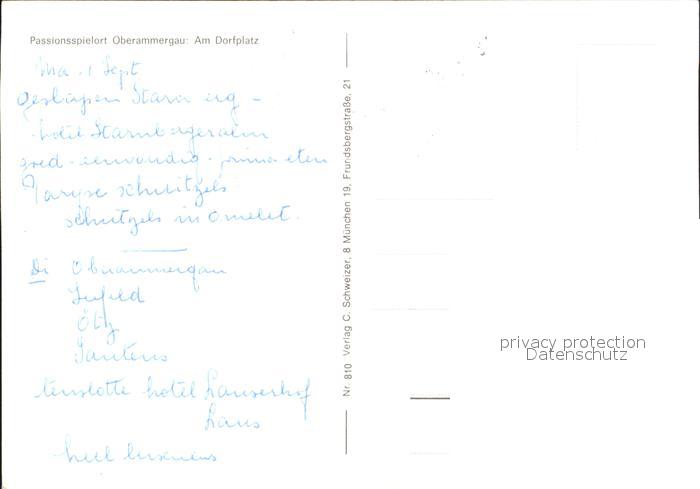 Passionsspielort Oberammergau: Am Dorfplatz
Ma. 1 Sept
geslapen
hotel Starnbergeralm
goed - eenvoudig - prima eten
schnitzels
schnitzels in omelet.
Di Oberammergau
Seefeld
Ötz
tenslotte hotel Lanserhof
Lans
heel
Nr. 810 Verlag C. Schweizer, 8 München 19, Frundsbergstraße, 21
privacy protection
Datenschutz